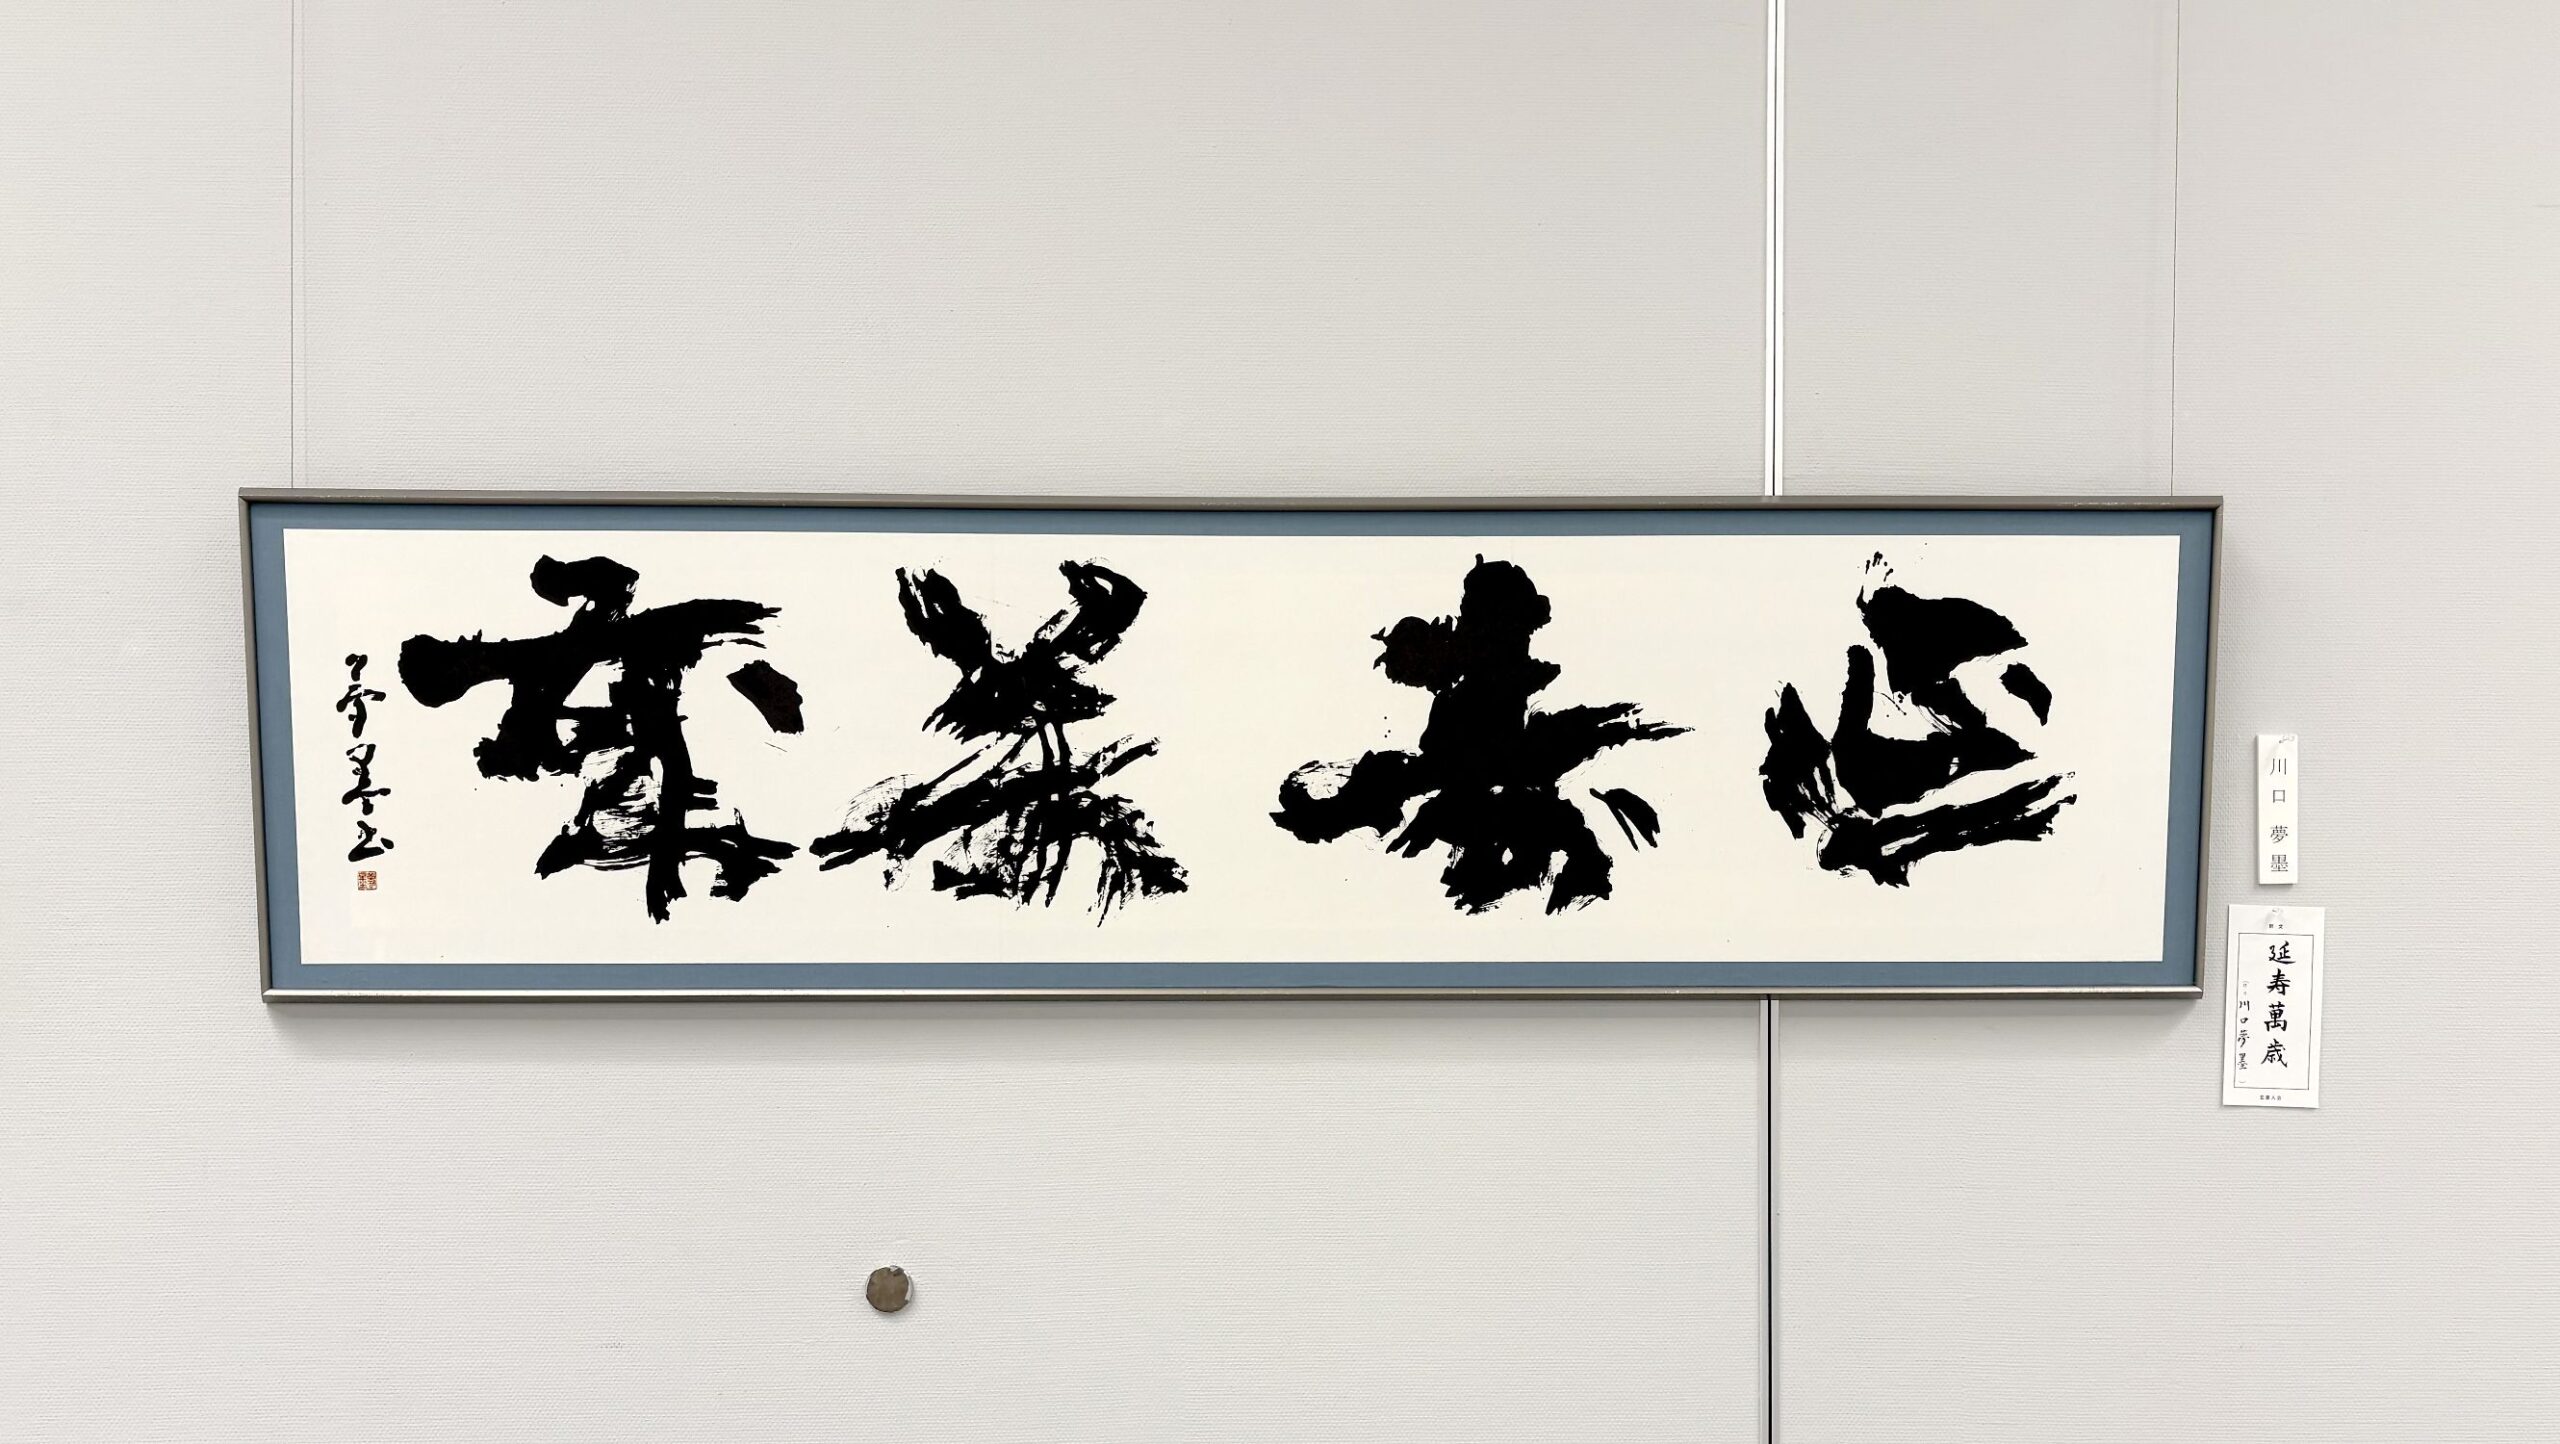 延寿萬歳
夢墨書
川口夢墨
釈文
延寿萬歳
川口夢墨